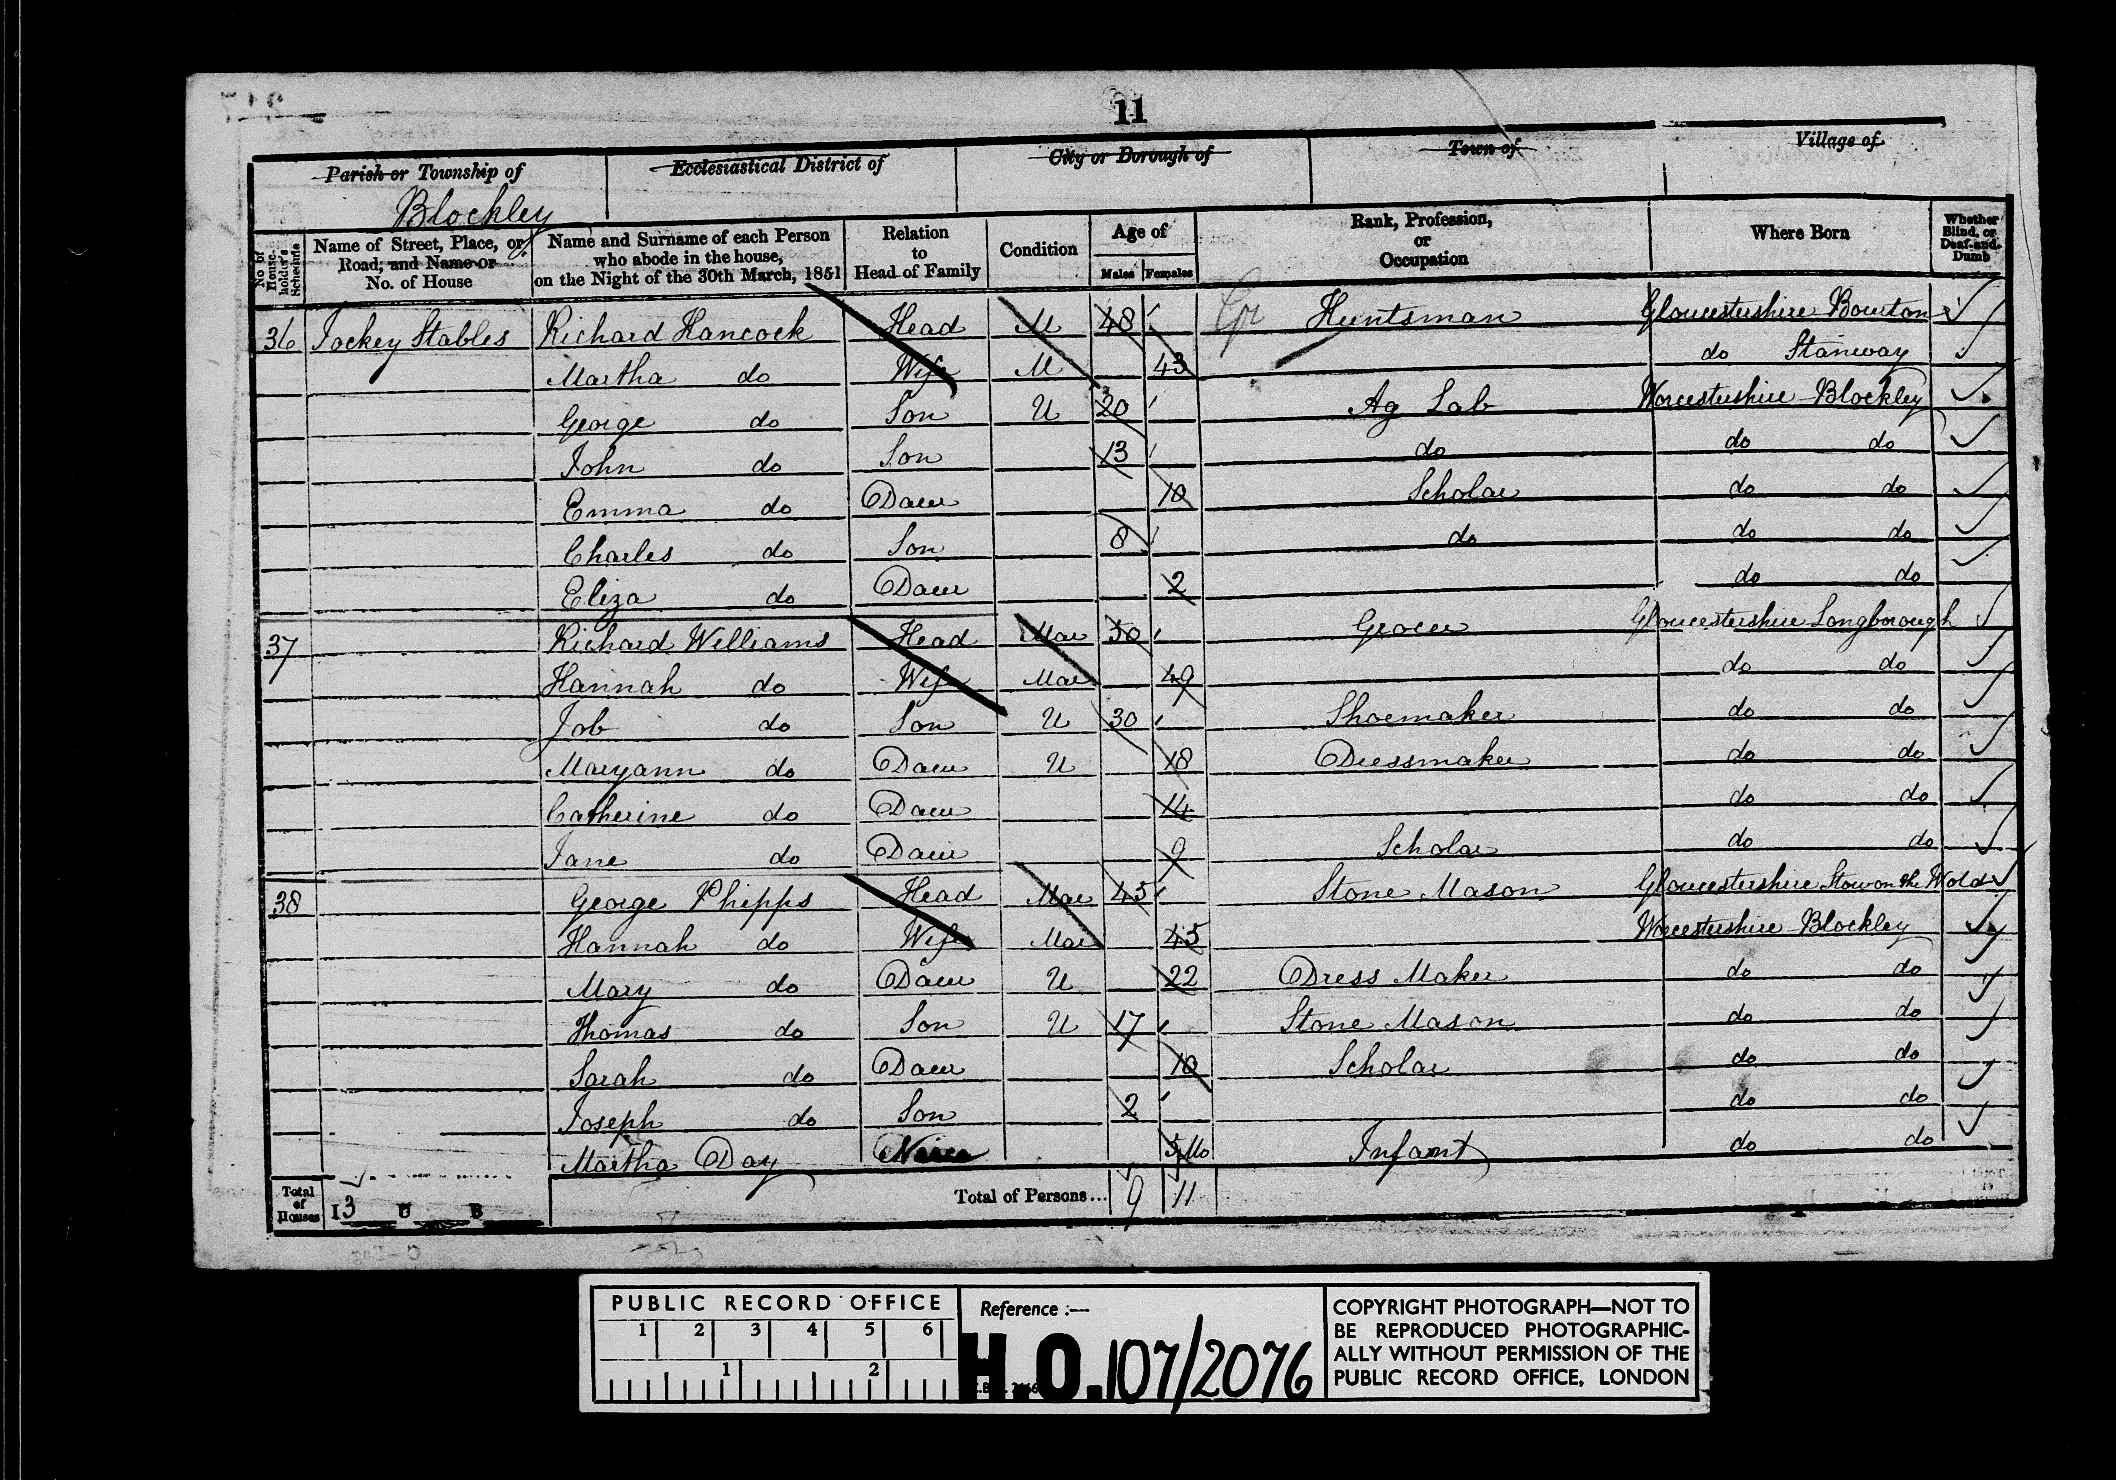 11
Parish or Township of Ecclesiastical District of City or Borough of Town of Village of
Blockley
No. of House-holder's Schedule Name of Street, Place, or Road, and Name or No. of House Name and Surname of each Person who abode in the house, on the Night of the 30th March, 1851 Relation to Head of Family Condition Age of Males Females Rank, Profession, or Occupation Where Born Whether Blind, or Deaf-and-Dumb
36 Jockey Stables Richard Hancock Head M 48 Huntsman Gloucestershire Bourton
Martha do Wife M 43 do Stanway
George do Son U 20 Ag Lab Worcestershire Blockley
John do Son 13 do do do
Emma do Daur 10 Scholar do do
Charles do Son 8 do do do
Eliza do Daur 2 do do
37 Richard Williams Head Mar 50 Grocer Gloucestershire Longborough
Hannah do Wife Mar 49 do do
Job do Son U 30 Shoemaker do do
Maryann do Daur U 18 Dressmaker do do
Catherine do Daur 14 do do
Jane do Daur 9 Scholar do do
38 George Phipps Head Mar 45 Stone Mason Gloucestershire Stow on the Wold
Hannah do Wife Mar 45 Worcestershire Blockley
Mary do Daur U 22 Dress Maker do do
Thomas do Son U 17 Stone Mason do do
Sarah do Daur 10 Scholar do do
Joseph do Son 2 do do
Martha Day Niece 5 Mo Infant do do
Total of Houses I 3 U B Total of Persons... 9 11
PUBLIC RECORD OFFICE
1 2 3 4 5 6
1 2
Reference :—
H.O. 107/2076
COPYRIGHT PHOTOGRAPH—NOT TO
BE REPRODUCED PHOTOGRAPHIC-
ALLY WITHOUT PERMISSION OF THE
PUBLIC RECORD OFFICE, LONDON